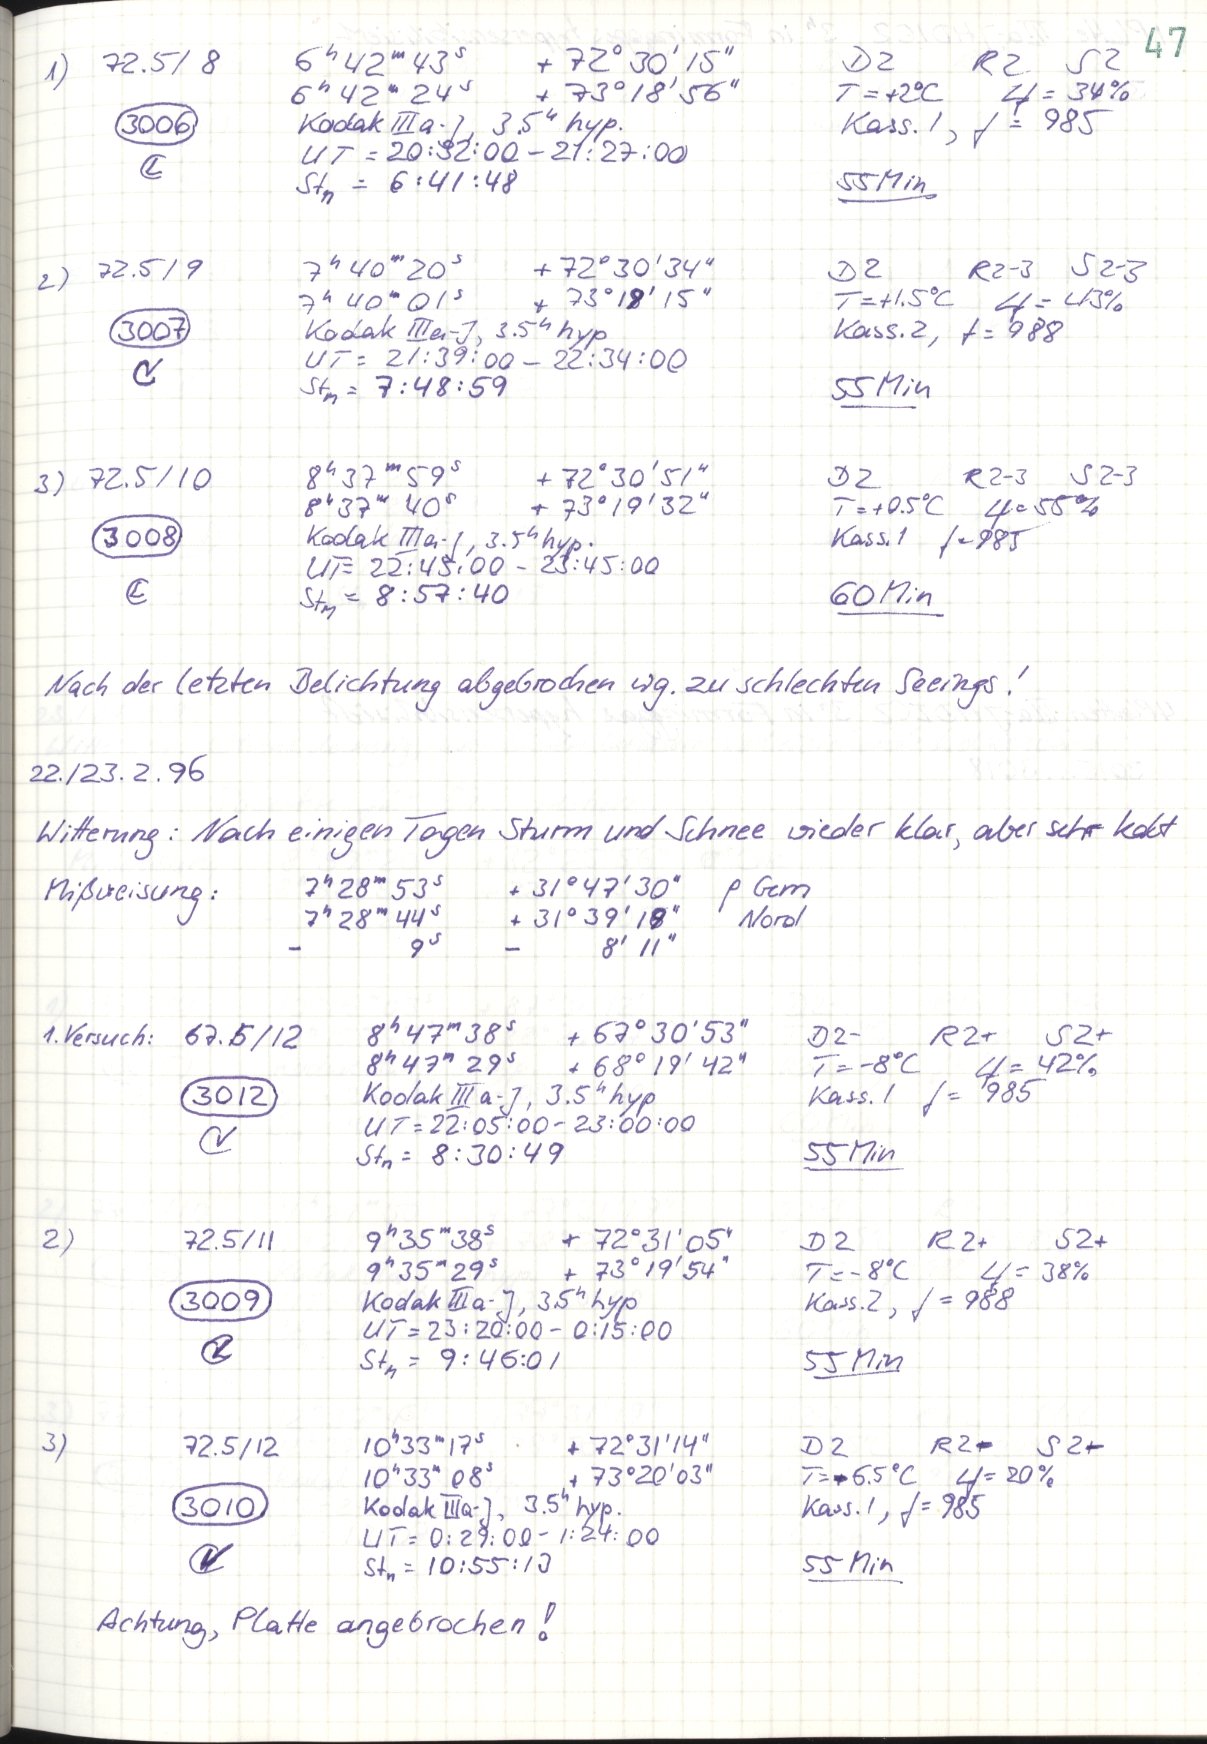 47
1) 72.5/8 6ʰ42ᵐ43ˢ +72°30'15" D2 R2 S2
6ʰ42ᵐ24ˢ +73°18'56" T=+2°C φ=34%
3006 Kodak IIIa-J, 3.5ʰ hyp. Kass.1, f=985
UT=20:32:00-21:27:00
Stₘ = 6:41:48 55Min
2) 72.5/9 7ʰ40ᵐ20ˢ +72°30'34" D2 R2-3 S2-3
7ʰ40ᵐ01ˢ +73°19'15" T=+1.5°C φ=43%
3007 Kodak IIIa-J, 3.5ʰ hyp Kass.2, f=988
UT=21:39:00-22:34:00
Stₘ = 7:48:59 55Min
3) 72.5/10 8ʰ37ᵐ59ˢ +72°30'51" D2 R2-3 S2-3
8ʰ37ᵐ40ˢ +73°19'32" T=+0.5°C φ=55%
3008 Kodak IIIa-J, 3.5ʰ hyp. Kass.1 f=985
UT=22:45:00-23:45:00
Stₘ = 8:57:40 60Min
Nach der letzten Belichtung abgebrochen wg. zu schlechten Seeings!
22./23.2.96
Witterung: Nach einigen Tagen Sturm und Schnee wieder klar, aber sehr kalt
Mißweisung: 7ʰ28ᵐ53ˢ +31°47'30" ρ Gem
7ʰ28ᵐ44ˢ +31°39'19" Nord
- 9ˢ - 8'11"
1. Versuch: 67.5/12 8ʰ47ᵐ38ˢ +67°30'53" D2- R2+ S2+
8ʰ47ᵐ29ˢ +68°19'42" T=-8°C φ=42%
3012 Kodak IIIa-J, 3.5ʰ hyp Kass.1 f=985
UT=22:05:00-23:00:00
Stₘ = 8:30:49 55Min
2) 72.5/11 9ʰ35ᵐ38ˢ +72°31'05" D2 R2+ S2+
9ʰ35ᵐ29ˢ +73°19'54" T=-8°C φ=38%
3009 Kodak IIIa-J, 3.5ʰ hyp Kass.2, f=988
UT=23:20:00-0:15:00
Stₘ = 9:46:01 55Min
3) 72.5/12 10ʰ33ᵐ17ˢ +72°31'14" D2 R2- S2+
10ʰ33ᵐ08ˢ +73°20'03" T=-6.5°C φ=20%
3010 Kodak IIIa-J, 3.5ʰ hyp. Kass.1, f=985
UT=0:29:00-1:24:00
Stₘ = 10:55:13 55Min
Achtung, Platte angebrochen!